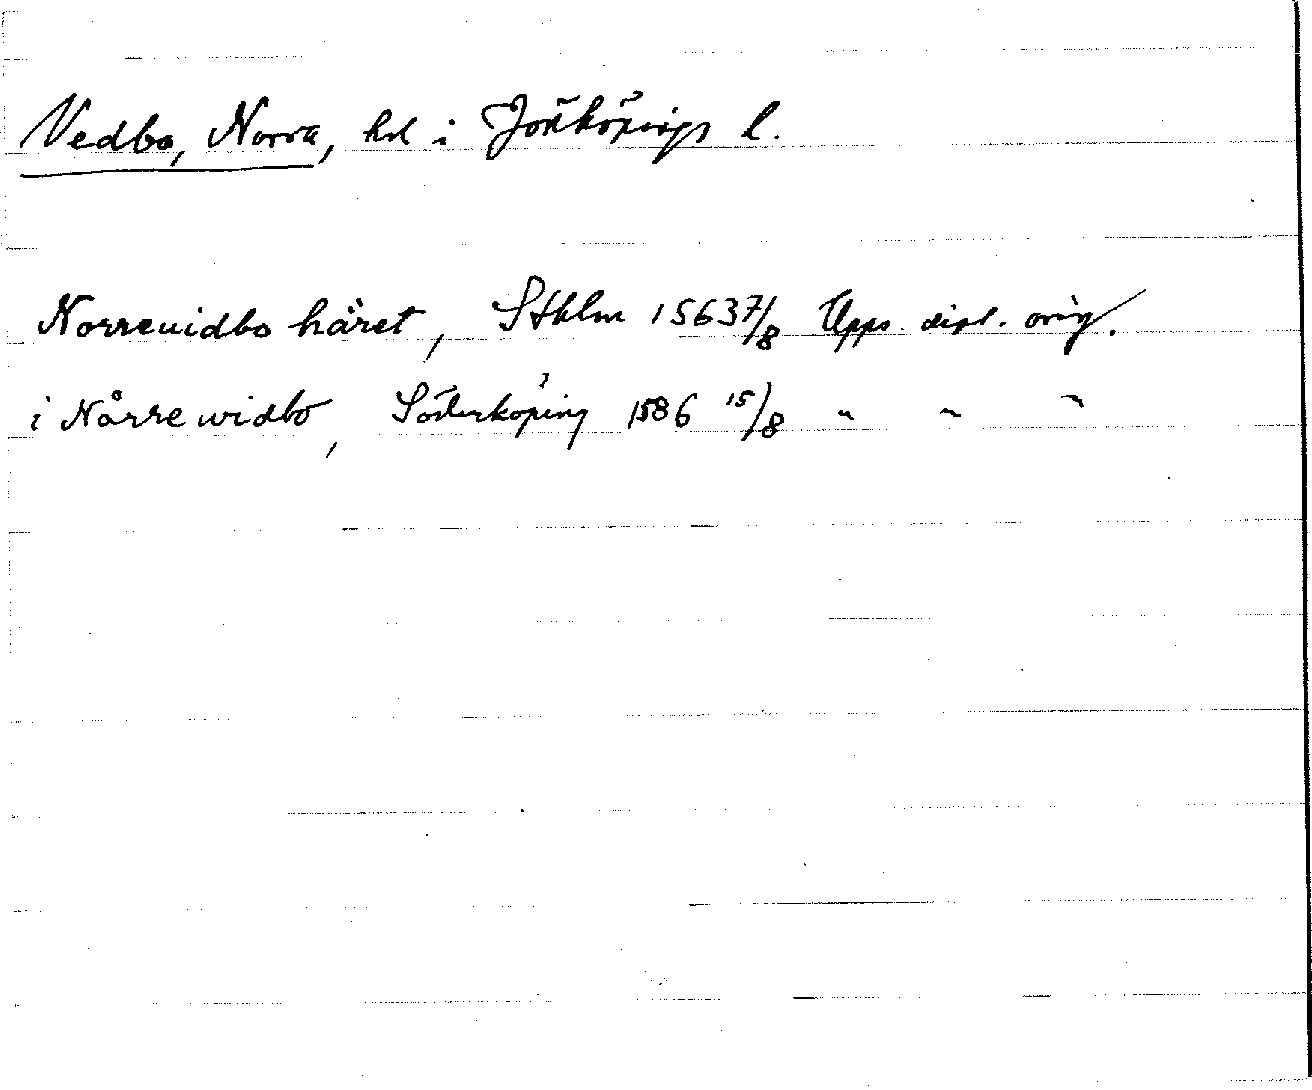 Vedbo, Norra, hd i Jönköpings l.
Norreuidbo häret, Sthlm 1563 7/8 Upps. dipl. orig.
i Nårre widbo, Söderköping 1586 15/8 " " "